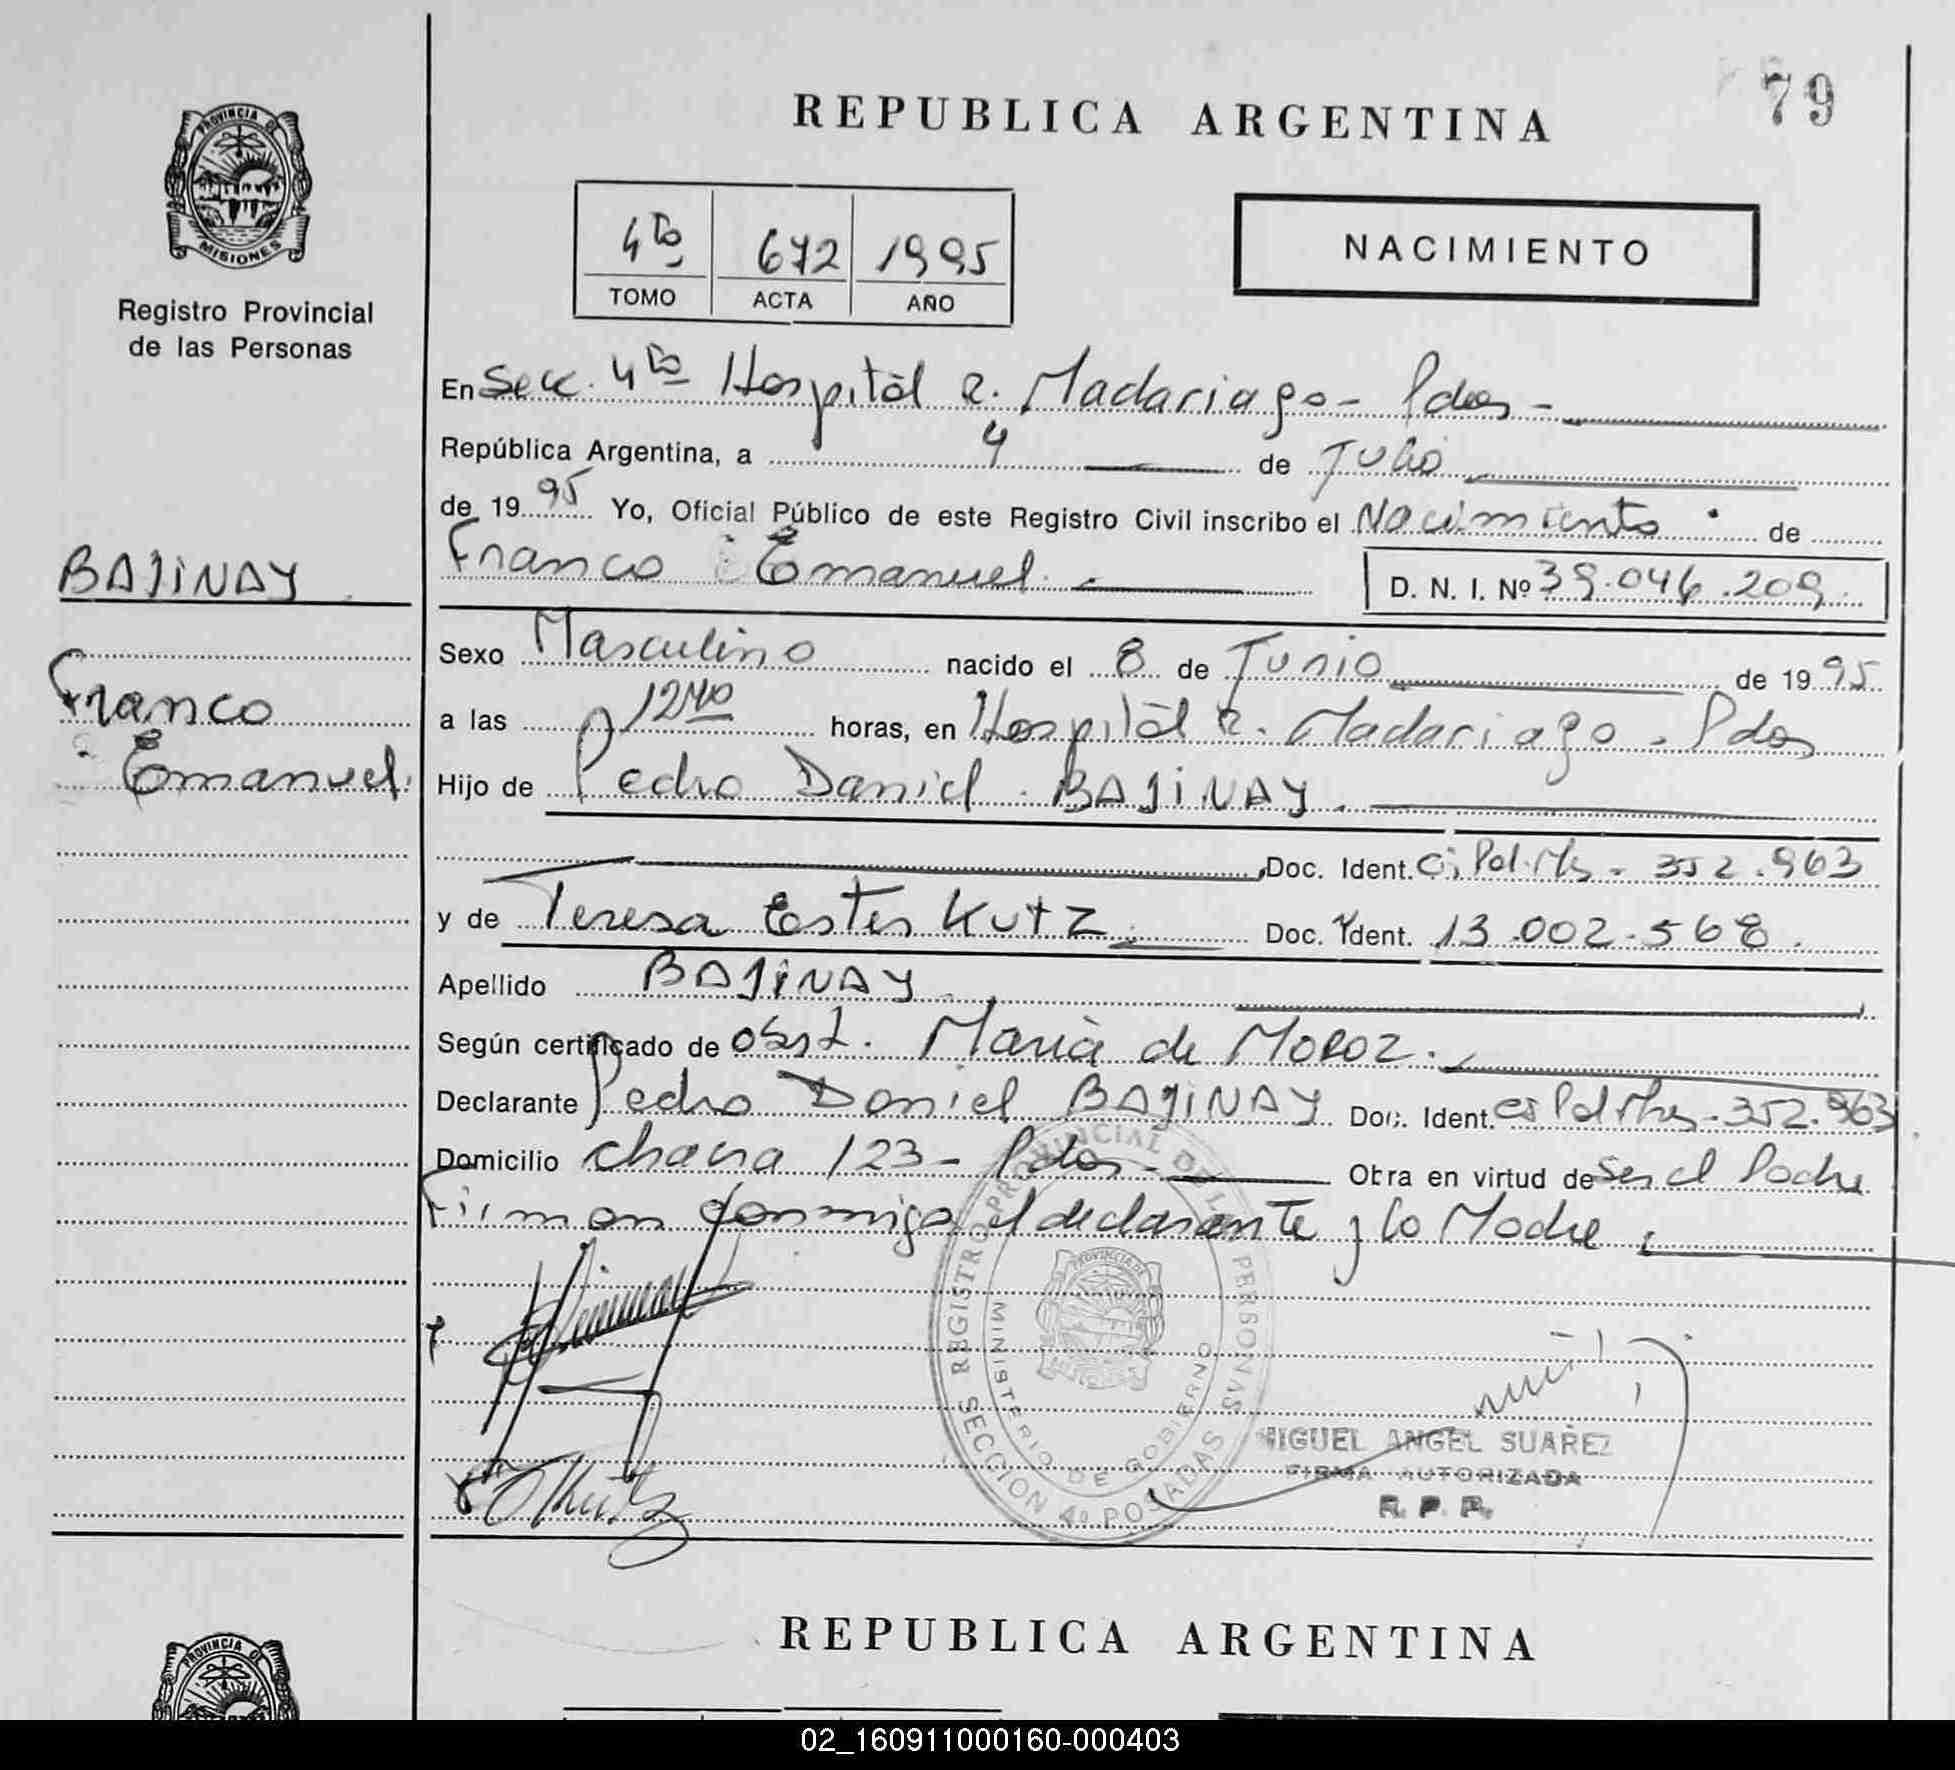 79
REPUBLICA ARGENTINA
PROVINCIA DE
MISIONES
Registro Provincial
de las Personas
4to 672 1995
TOMO ACTA AÑO
NACIMIENTO
En Secc. 4ta Hospital R. Madariaga - Pdas -
República Argentina, a 4 de Julio
de 1995 Yo, Oficial Público de este Registro Civil inscribo el Nacimiento de
Franco Emanuel
D. N. I. Nº 39.046.209
BAJINAY
Franco
Emanuel
Sexo Masculino nacido el 8 de Junio de 1995
a las 1240 horas, en Hospital R. Madariaga - Pdas
Hijo de Pedro Daniel BAJINAY
Doc. Ident. Ci. Pol. Ms - 352.963
y de Teresa Ester KUTZ Doc. Ident. 13.002.568
Apellido BAJINAY
Según certificado de obst. Maria de MOROZ.
Declarante Pedro Daniel BAJINAY Doc. Ident. Ci Pol Mns - 352.963
Domicilio chacra 123 - Pdas - Obra en virtud de ser el Padre
Firman conmigo el declarante y la Madre
REGISTRO PROVINCIAL DE LAS PERSONAS
MINISTERIO DE GOBIERNO
PROVINCIA DE
SECCION 4º POSADAS
MIGUEL ANGEL SUAREZ
FIRMA AUTORIZADA
R. P. P.
Kutz
REPUBLICA ARGENTINA
PROVINCIA DE
02_160911000160-000403